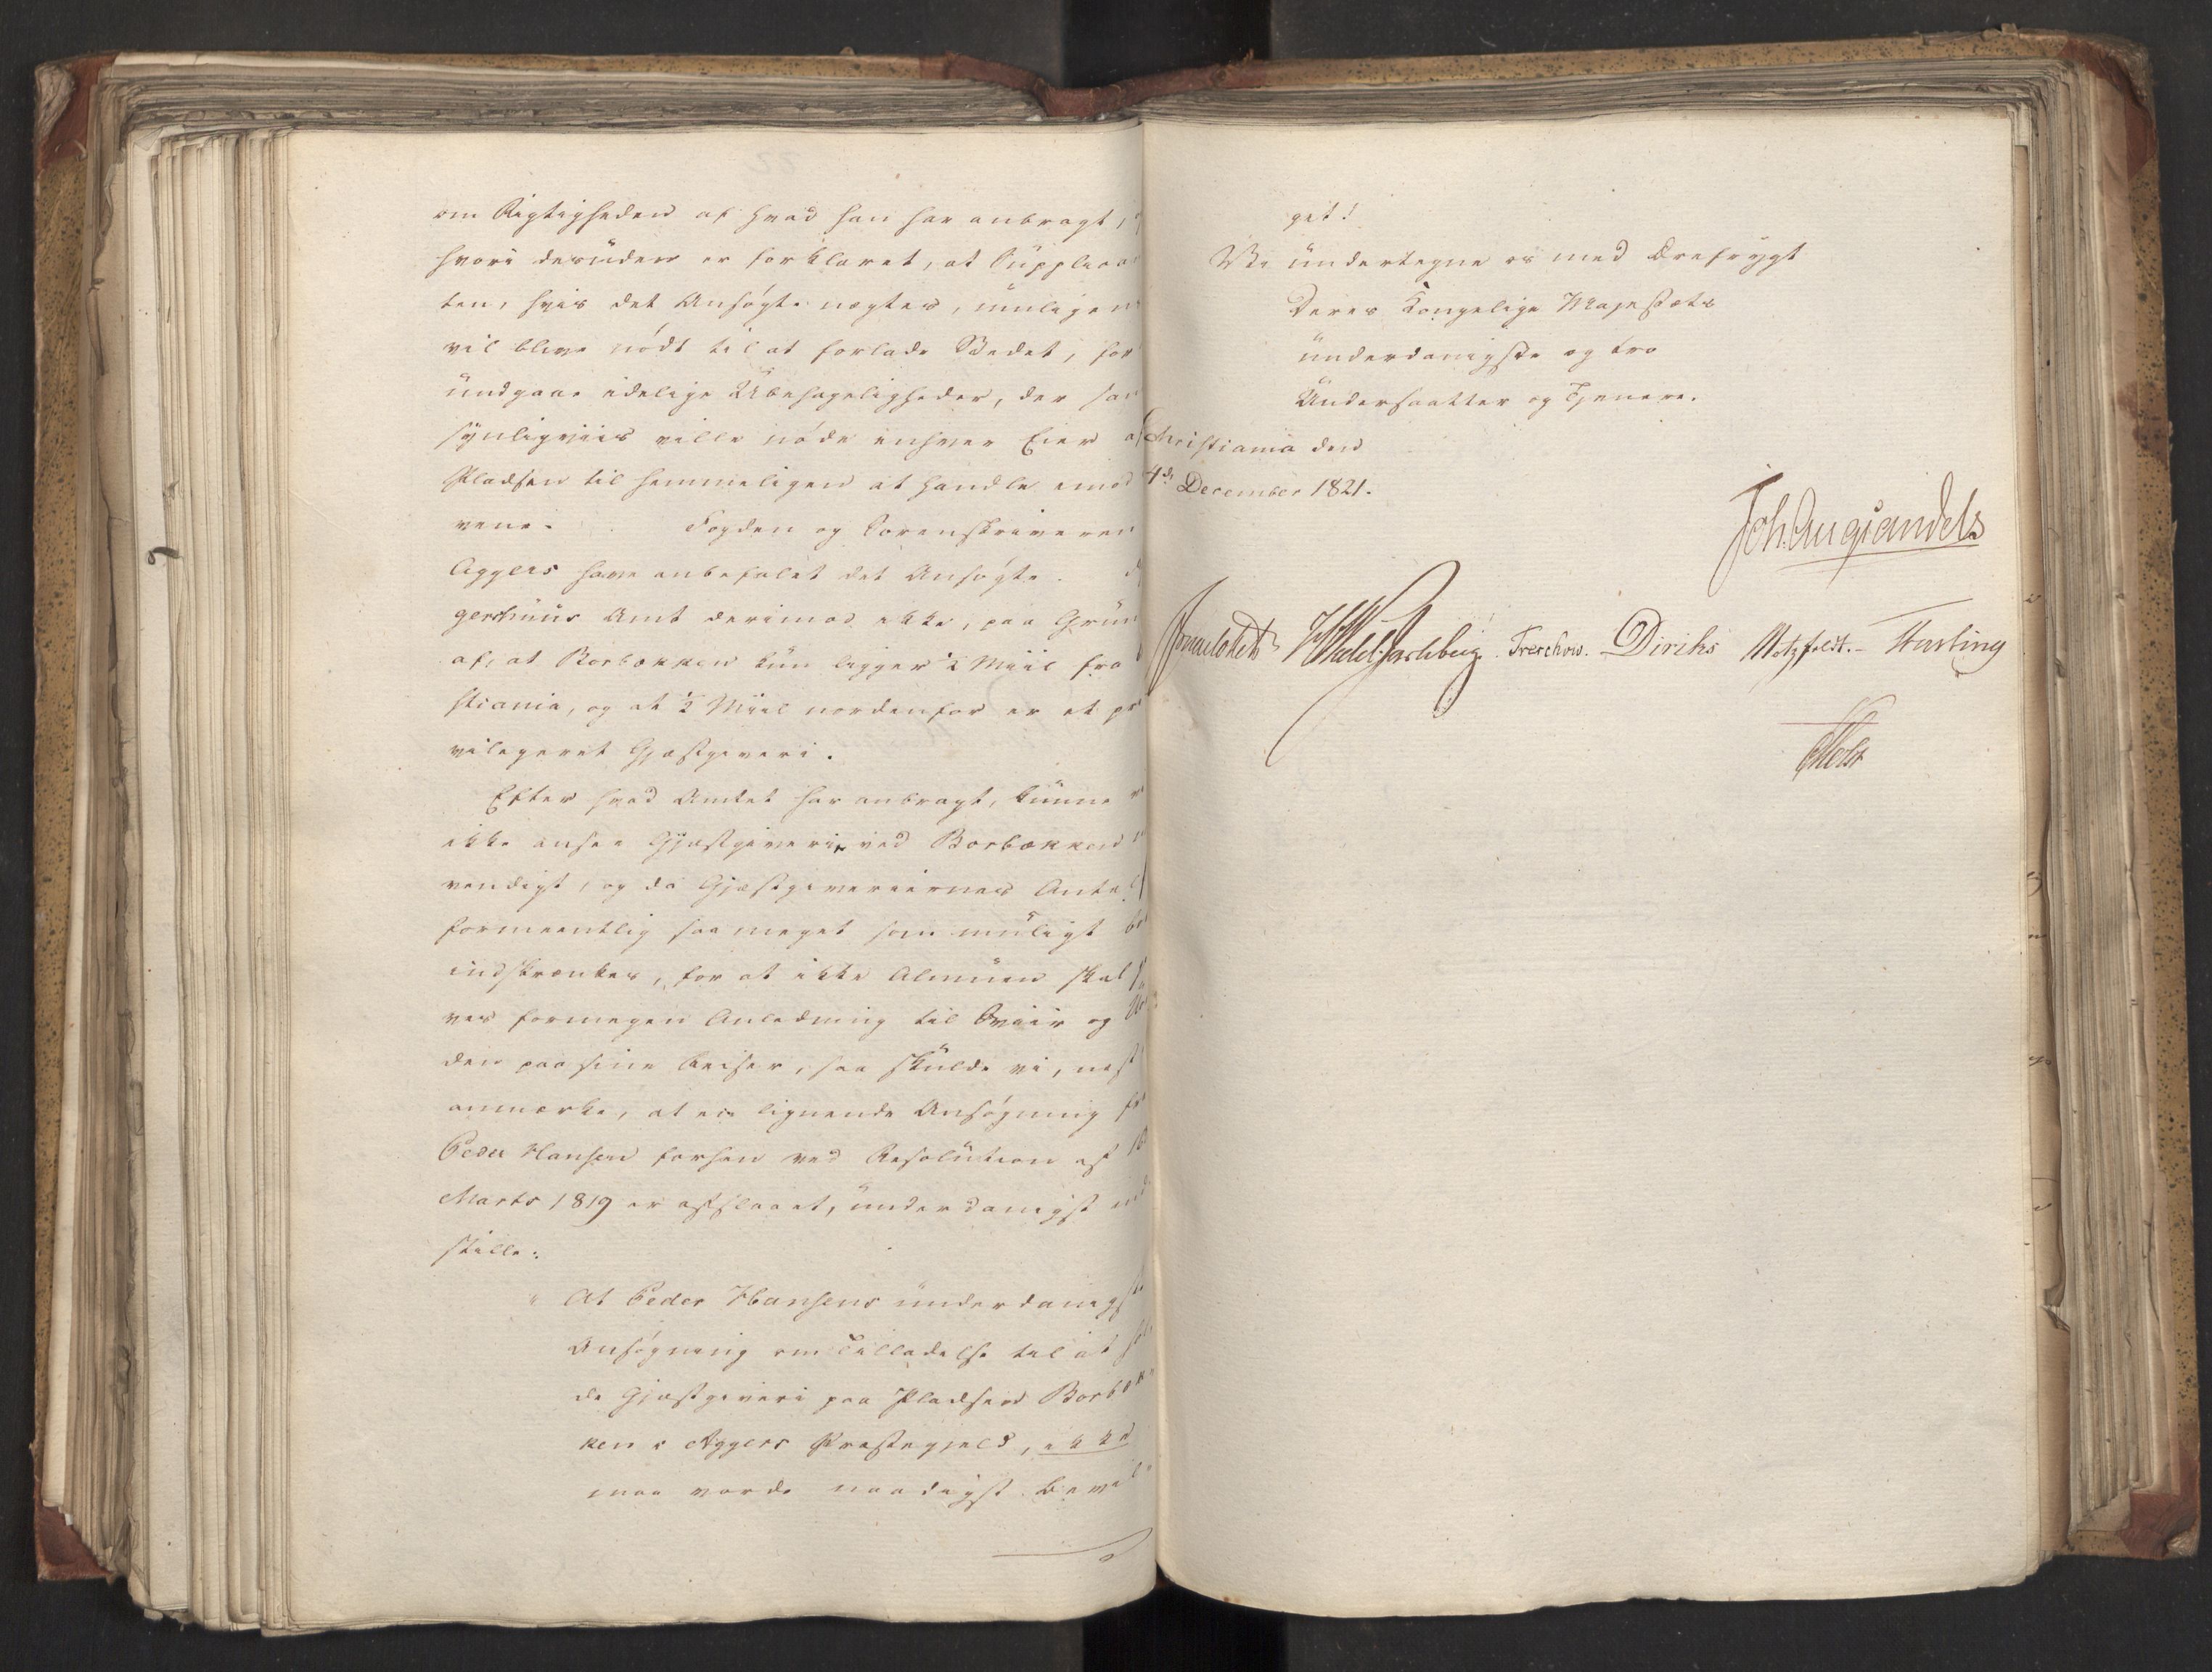 om Rigtigheden af hvad han har anbragt,
hvori desuden er forklaret, at Supplican
ten, hvis det Ansøgte nægtes, muligen
vil blive nødt til at forlade Stedet, for
undgaae idelige Ubehageligheder, der san
synligviis ville nøde enhver Eier af
Pladsen til hemmeligen at handle imod
vene. Fogden og Sorenskriveren
Aggers have anbefalet det Ansøgte.
gershuus Amt derimod ikke, paa Grun
af, at Borbækken kun ligger ½ Miil fra
stiania, og at ½ Miil nordenfor er et pri
vilegeret Gjæstgiveri.
Efter hvad Amtet har anbragt, kunne vi
ikke ansee Gjæstgiveri ved Borbækken
vendigt, og da Gjæstgiveriernes Antal
formeentlig saa meget som muligt bør
indskrænkes, for at ikke Almuen skal ha
ves formegen Anledning til Sviir og
den paa sine Reiser, saa skulde vi, næst
anmærke, at en lignende Ansøgning fra
Peder Hansen forhen ved Resolution af
Marts 1819 er afslaaet, underdanigst ind
stille:
" At Peder Hansens underdanigste
Ansøgning om Tilladelse til at hol
de Gjæstgiveri paa Pladsen Borbæk
ken i Aggers Præstegjeld, ikke
maa vorde naadigst bevil
get!
Vi undertegne os med Ærefrygt
Deres Kongelige Majestæts
underdanigste og tro
Undersaatter og Tjenere.
Christiania den
4de December 1821.
Joh. Aug Sandels
Sommerhielm HWedel Jarlsberg Treschow. Diriks Motzfeldt. Fasting
Holst